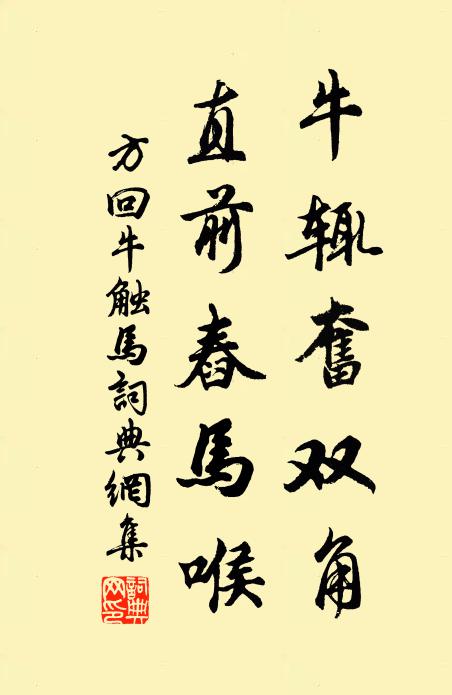 牛辄奮双角
直前舂馬喉
方回牛触馬詞典網集
詞典網印